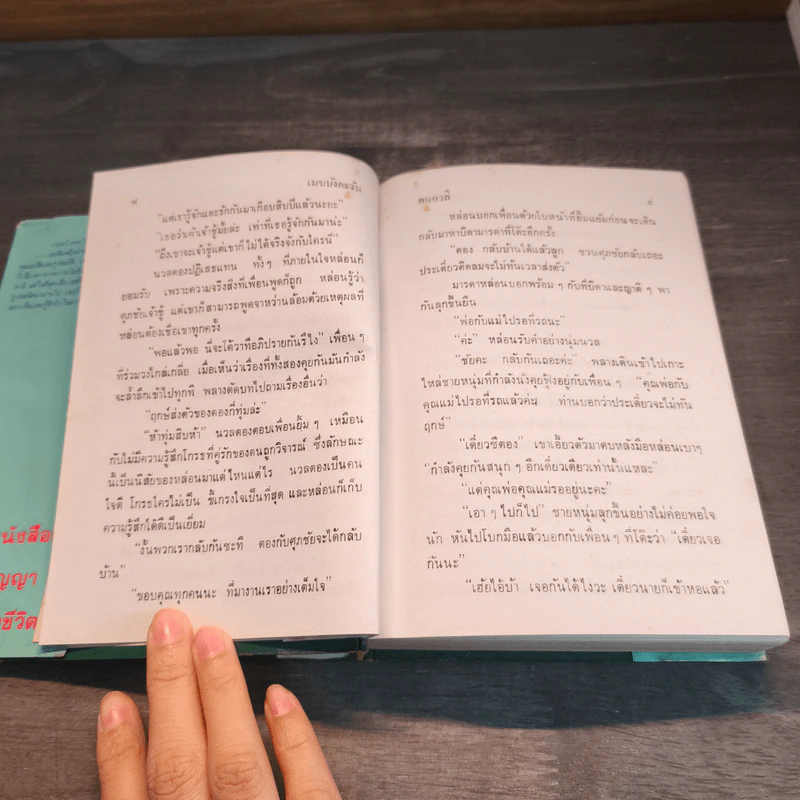 ๘
เมฆบังตะวัน
"แต่เรารู้จักและรักกันมาเกือบสิบปีแล้วนะยะ"
"เธอว่าเค้าเจ้าชู้มั้ยล่ะ เท่าที่เธอรู้จักกันมาน่ะ"
"ถึงเขาจะเจ้าชู้แต่เขาก็ไม่ได้จริงจังกับใครนี่"
นวลตองปฏิเสธแทน ทั้งๆ ที่ภายในใจหล่อนก็
ยอมรับ เพราะความจริงสิ่งที่เพื่อนพูดก็ถูก หล่อนรู้ว่า
ศุภชัยเจ้าชู้ แต่เขาก็สามารถพูดจาหว่านล้อมด้วยเหตุผลที่
หล่อนต้องเชื่อเขาทุกครั้ง
"พอแล้วพอ นี่จะโต้วาทีอภิปรายกันรึไง" เพื่อนๆ
ที่ร่วมวงไกล่เกลี่ย เมื่อเห็นว่าเรื่องที่ทั้งสองคุยกันมันกำลัง
จะล้ำลึกเข้าไปทุกที พลางตัดบทไปถามเรื่องอื่นว่า
"ฤกษ์ส่งตัวของตองกี่ทุ่มล่ะ"
"ห้าทุ่มสิบห้า" นวลตองตอบเพื่อนยิ้มๆ เหมือน
กับไม่มีความรู้สึกโกรธที่คู่รักของตนถูกวิจารณ์ ซึ่งลักษณะ
นี้เป็นนิสัยของหล่อนมาแต่ไหนแต่ไร นวลตองเป็นคน
ใจดี โกรธใครไม่เป็น ขี้เกรงใจเป็นที่สุด และหล่อนก็เก็บ
ความรู้สึกได้ดีเป็นเยี่ยม
"งั้นพวกเรากลับกันซะที ตองกับศุภชัยจะได้กลับ
บ้าน"
"ขอบคุณทุกคนนะ ที่มางานเราอย่างเต็มใจ"
คนกวลี
๙
หล่อนบอกเพื่อนด้วยใบหน้าที่ยิ้มแย้มก่อนจะเดิน
กลับมาหาบิดามารดาที่โต๊ะอีกครั้ง
"ตอง กลับบ้านได้แล้วลูก ชวนศุภชัยกลับเถอะ
ประเดี๋ยวติดลมจะไม่ทันเวลาส่งตัว"
มารดาหล่อนบอกพร้อมๆ กับที่บิดาและญาติๆ พา
กันลุกขึ้นยืน
"พ่อกับแม่ไปรอที่รถนะ"
"ค่ะ" หล่อนรับคำอย่างนุ่มนวล
"ชัยคะ กลับกันเถอะค่ะ" พลางเดินเข้าไปเกาะ
ไหล่ชายหนุ่มที่กำลังนั่งคุยฟุ้งอยู่กับเพื่อนๆ "คุณพ่อกับ
คุณแม่ไปรอที่รถแล้วค่ะ ท่านบอกว่าประเดี๋ยวจะไม่ทัน
ฤกษ์"
"เดี๋ยวซีตอง" เขาเอี้ยวตัวมาตบหลังมือหล่อนเบาๆ
"กำลังคุยกันสนุกๆ อีกเดี๋ยวเดียวเท่านั้นแหละ"
"แต่คุณพ่อคุณแม่รออยู่นะคะ"
"เอาๆ ไปก็ไป" ชายหนุ่มลุกขึ้นอย่างไม่ค่อยพอใจ
นัก หันไปโบกมือแล้วบอกกับเพื่อนๆ ที่โต๊ะว่า "เดี๋ยวเจอ
กันนะ"
"เฮ้ยไอ้บ้า เจอกันได้ไงวะ เดี๋ยวนายก็เข้าหอแล้ว"